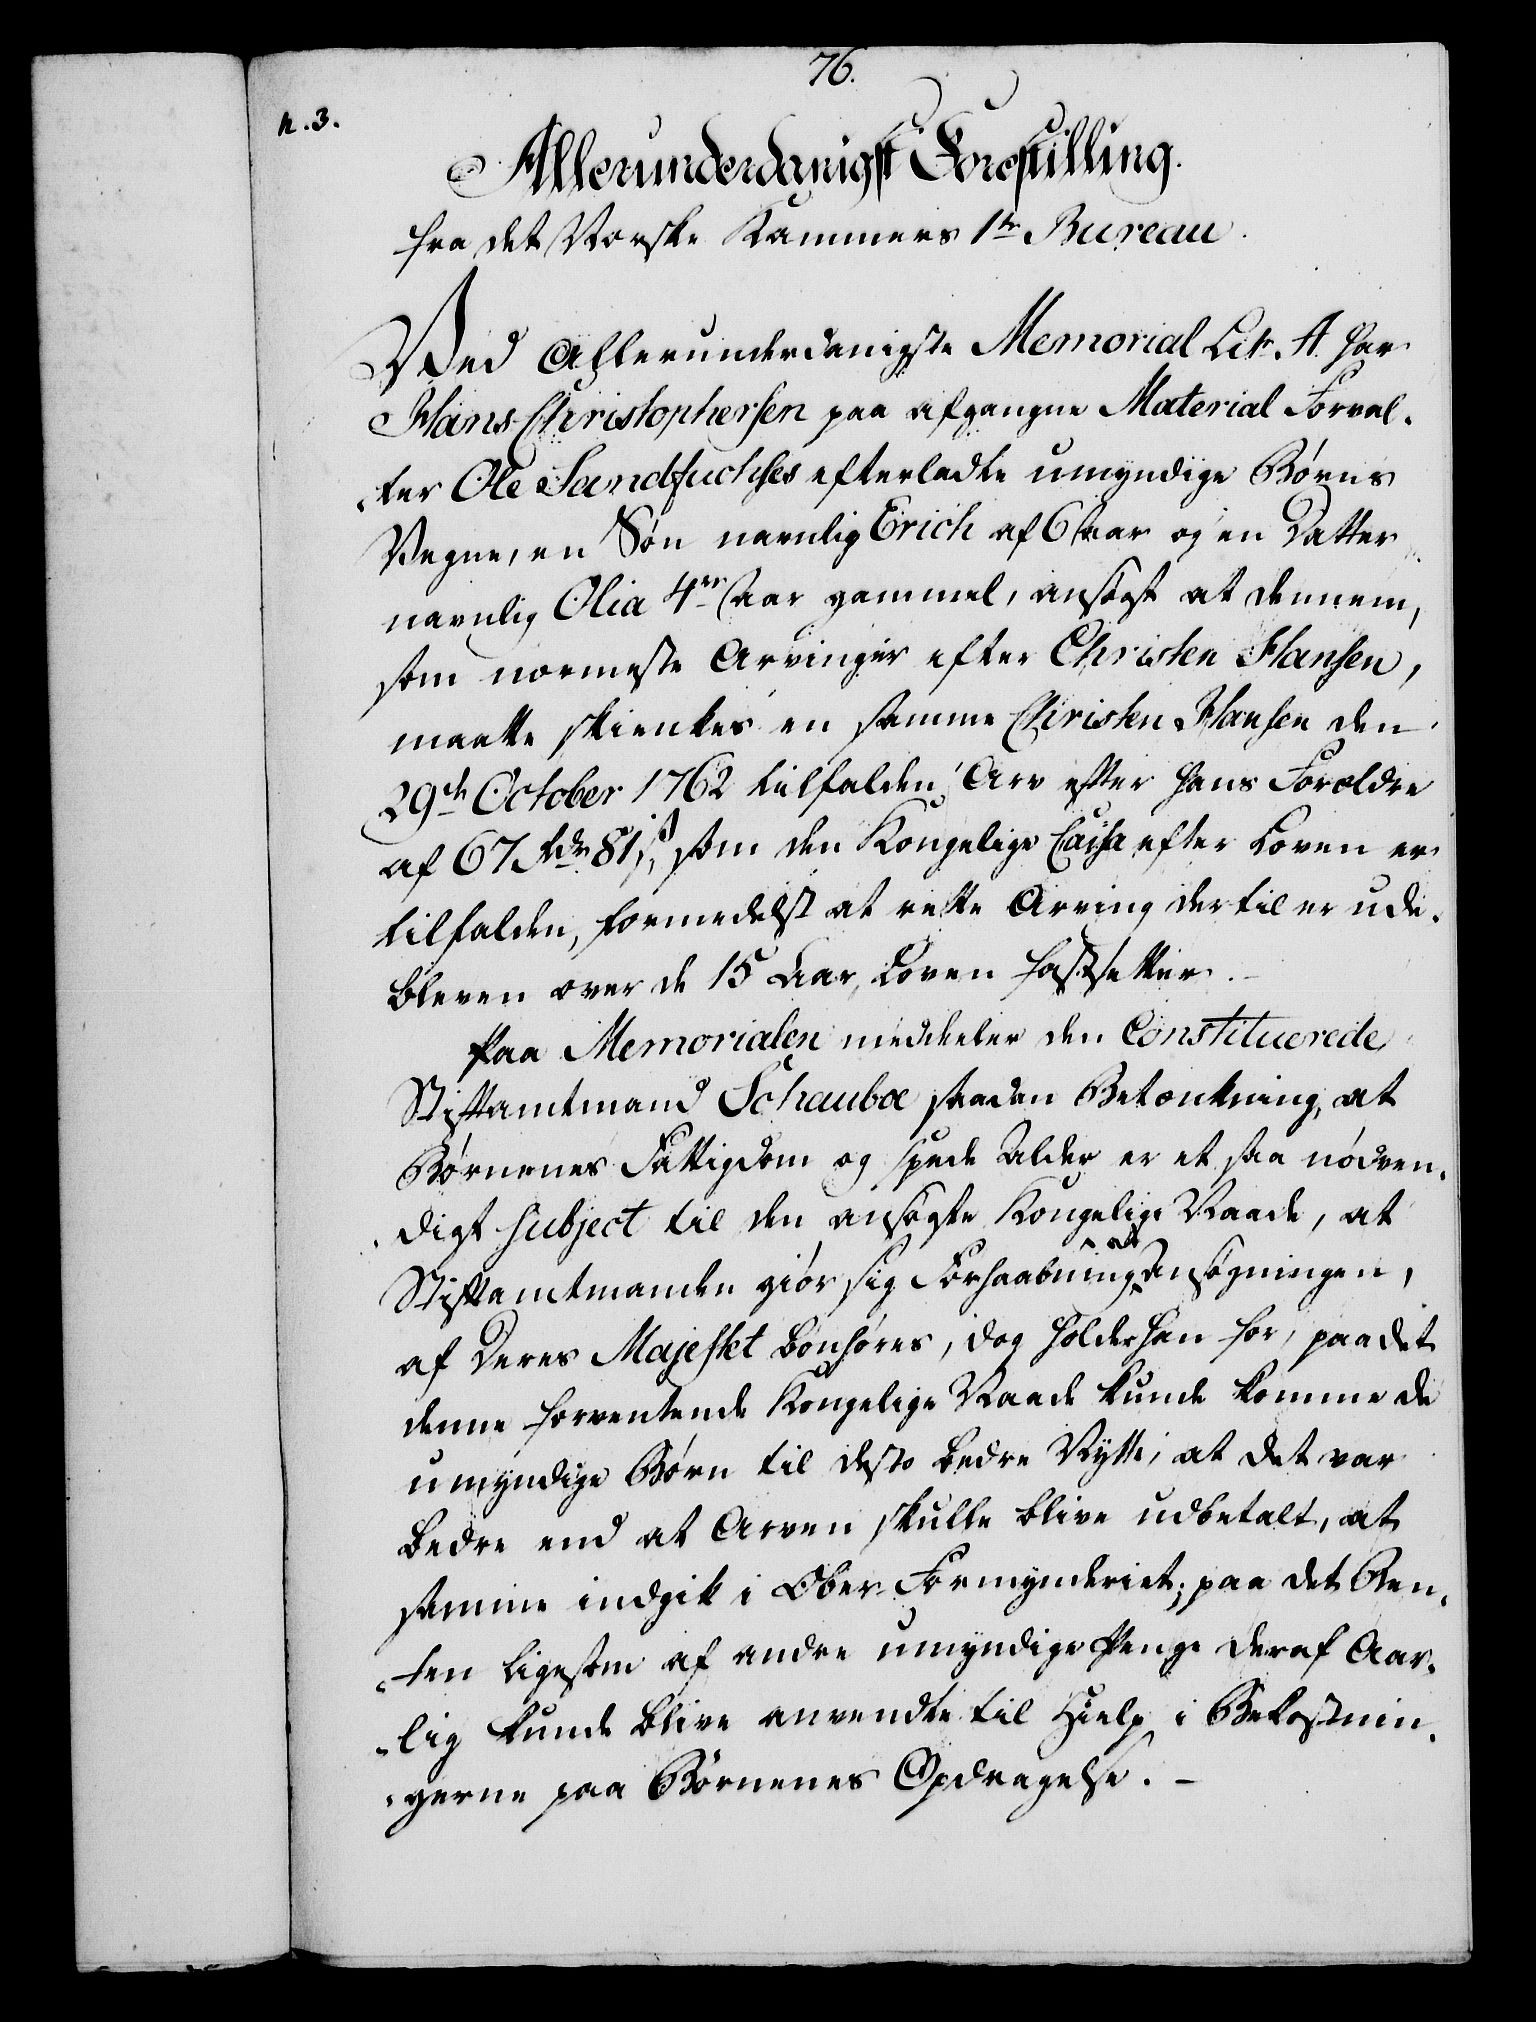 76.
n. 3.
Allerunderdanigst Forestilling.
fra det Norske Kammers 1te Bureau.
Ved Allerunderdanigste Memorial Litr. A. har
Hans Christophersen paa afgangne Material Forval-
ter Ole Sandfuchses efterladte umyndige Børns
Vegne, en Søn navnlig Erich af 6 Aar og en Datter
navnlig Olia 4re Aar gammel, ansøgt at dennem,
som nærmeste Arvinger efter Christen Hansen,
maatte skienkes en samme Christen Hansen den
29de October 1762 tilfalden Arv efter hans Forældre
af 67 Rdr 81 s, som den Kongelige Cassa efter Loven er
tilfalden, formedelst at rette Arving dertil er ude-
bleven over de 15 Aar, Loven fastsetter. -
Paa Memorialen meddeler den Constituerede
Stiftamtmand Schauboe saadan Betænkning, at
Børnenes Fattigdom og spæde Alder er et saa nødven-
digt Subject til den ansøgte Kongelige Naade, at
Stiftamtmanden giør sig Forhaabning at Ansøgningen,
af Deres Majestet bønhøres, dog holder han for, paa det
denne forventende Kongelige Naade kunde komme de
umyndige Børn til desto bedre Nytte, at det var
bedre end at Arven skulle blive udbetalt, at
samme indgik i Ober-Formynderiet; paa det Ren-
ten ligesom af andre umyndige Penge deraf Aar-
lig kunde blive anvendte til Hielp i Bekostnin-
gerne paa Børnenes Opdragelse. -